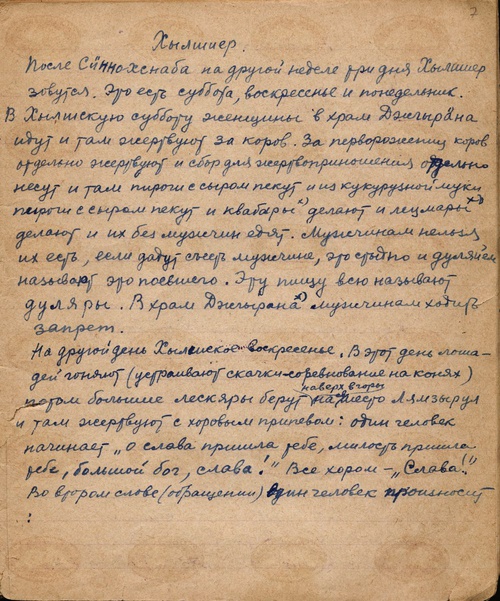 7
Хылшиер.
После Сӥннохснаба на другой неделе три дня Хылшиер
зовутся. Это есть суббота, воскресенье и понедельник.
В Хылшскую субботу женщины в храм Джгырӓна
идут и там жертвуют за коров. За перворожениц коров
отдельно жертвуют и сбор для жертвоприношения отдельно
несут и там пироги с сыром пекут и из кукурузной муки
пироги с сыром пекут и квабӓры х) делают и лецмары хх)
делают и их без мужчин едят. Мужчинам нельзя
их есть, если дадут съесть мужчине, это стыдно и дуляйём
называют это поевшего. Эту пищу всю называют
дуляры. В храм Джгырӓна х) мужчинам ходить
запрет.
На другой день Хылшское воскресенье. В этот день лоша-
дей гоняют (устраивают скачки-соревнование на конях)
потом большие лескяры берут наверх вторые на место Лямзыруя
и там жертвуют с хоровым припевом: один человек
начинает „о слава пришла тебе, милость пришла
тебе, большой бог, слава!" Все хором – „Слава!"
Во втором слове (обращении) один человек произносит
: